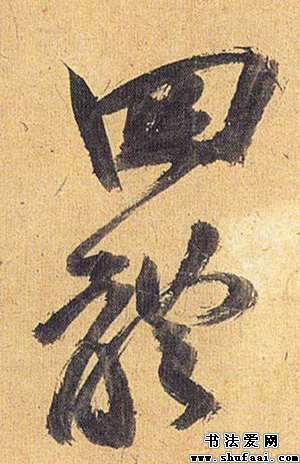 四
體
书法爱网
www.shufaai.com